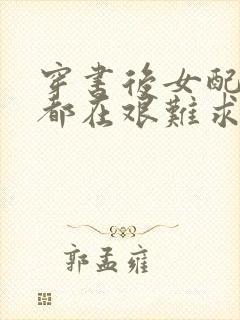 穿書後女配
都在艱難求
郭孟雍